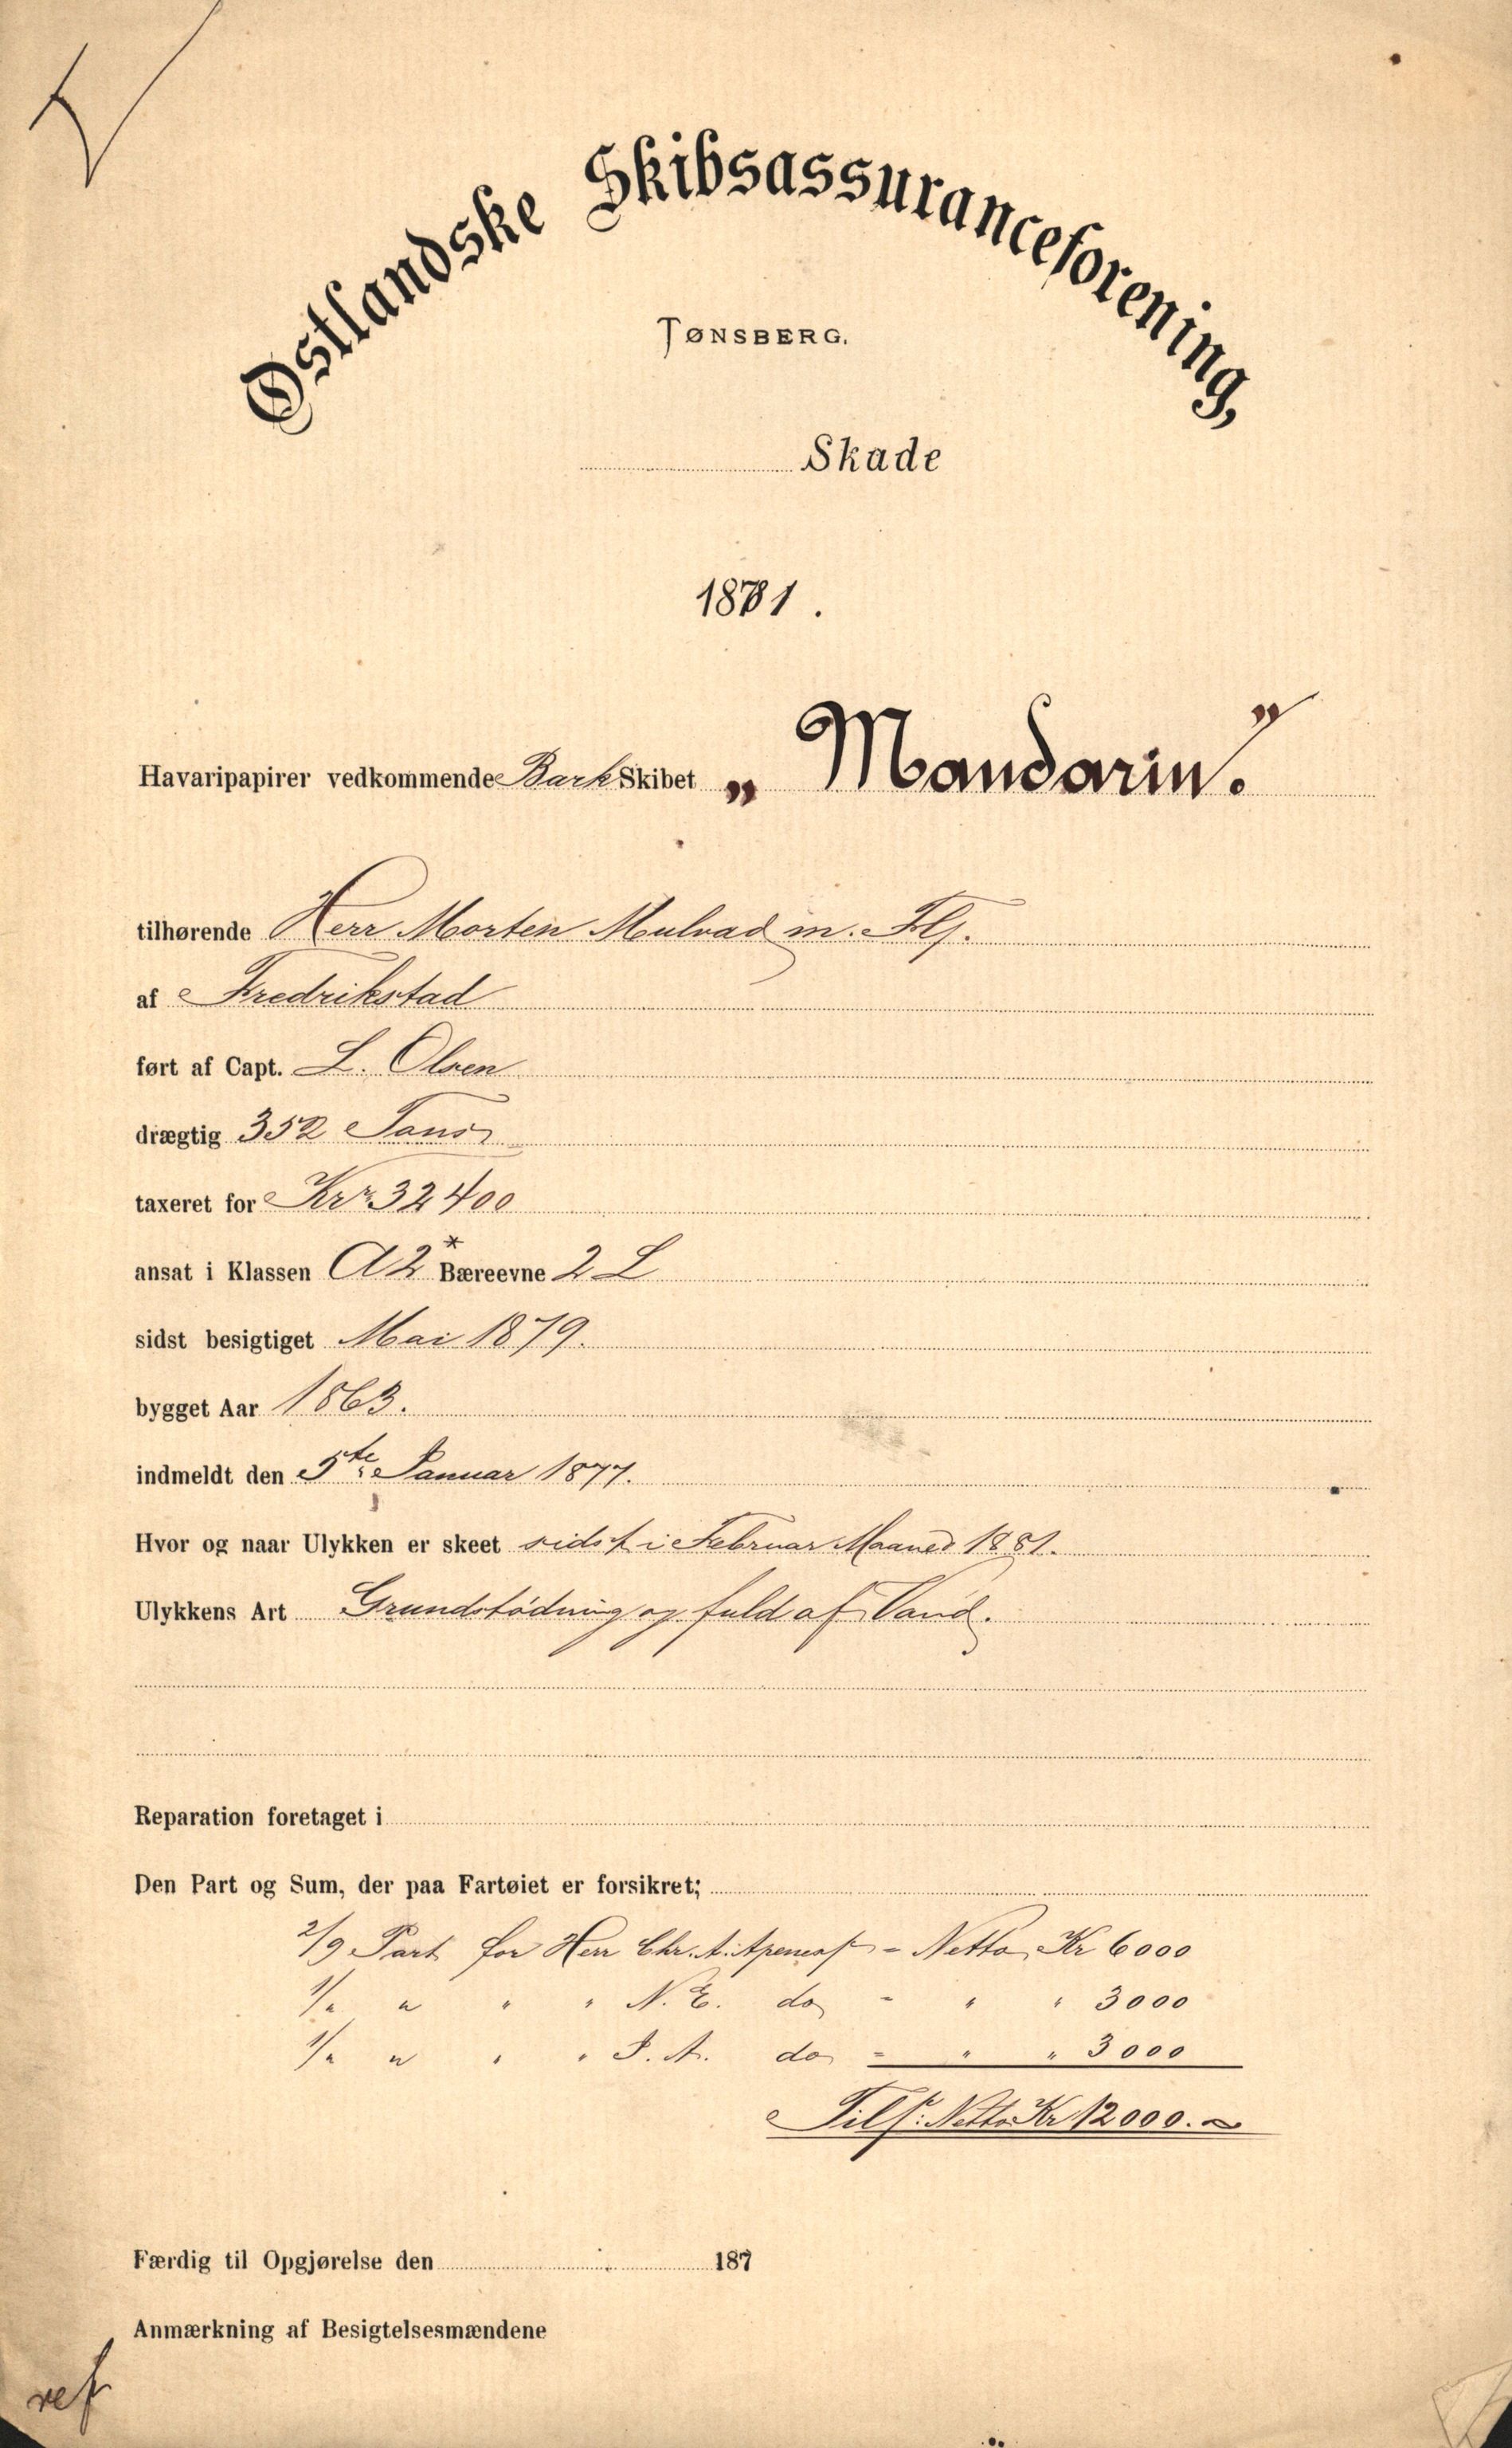 Østlandske Skibsassuranceforening,
TØNSBERG.
Skade
1881.
Havaripapirer vedkommende Bark Skibet „Mandarin."
tilhørende Herr Morten Mulvad m. Flj.
af Fredrikstad
ført af Capt. L. Olsen
drægtig 352 Tons
taxeret for Kr 32400
ansat i Klassen A2* Bæreevne 2 L
sidst besigtiget Mai 1879.
bygget Aar 1863.
indmeldt den 5te Januar 1877.
Hvor og naar Ulykken er skeet sidst i Februar Maaned 1881.
Ulykkens Art Grundstødning og fuld af Vand.
Reparation foretaget i
Den Part og Sum, der paa Fartøiet er forsikret;
2/9 Part for Herr Chr. A. - Netto Kr 6000
1/" " " " N. E. do - " " 3000
1/" " " " J. A. do = " " 3000
Tils: Netto Kr 12000.
Færdig til Opgjørelse den 187
Anmærkning af Besigtelsesmændene
ref